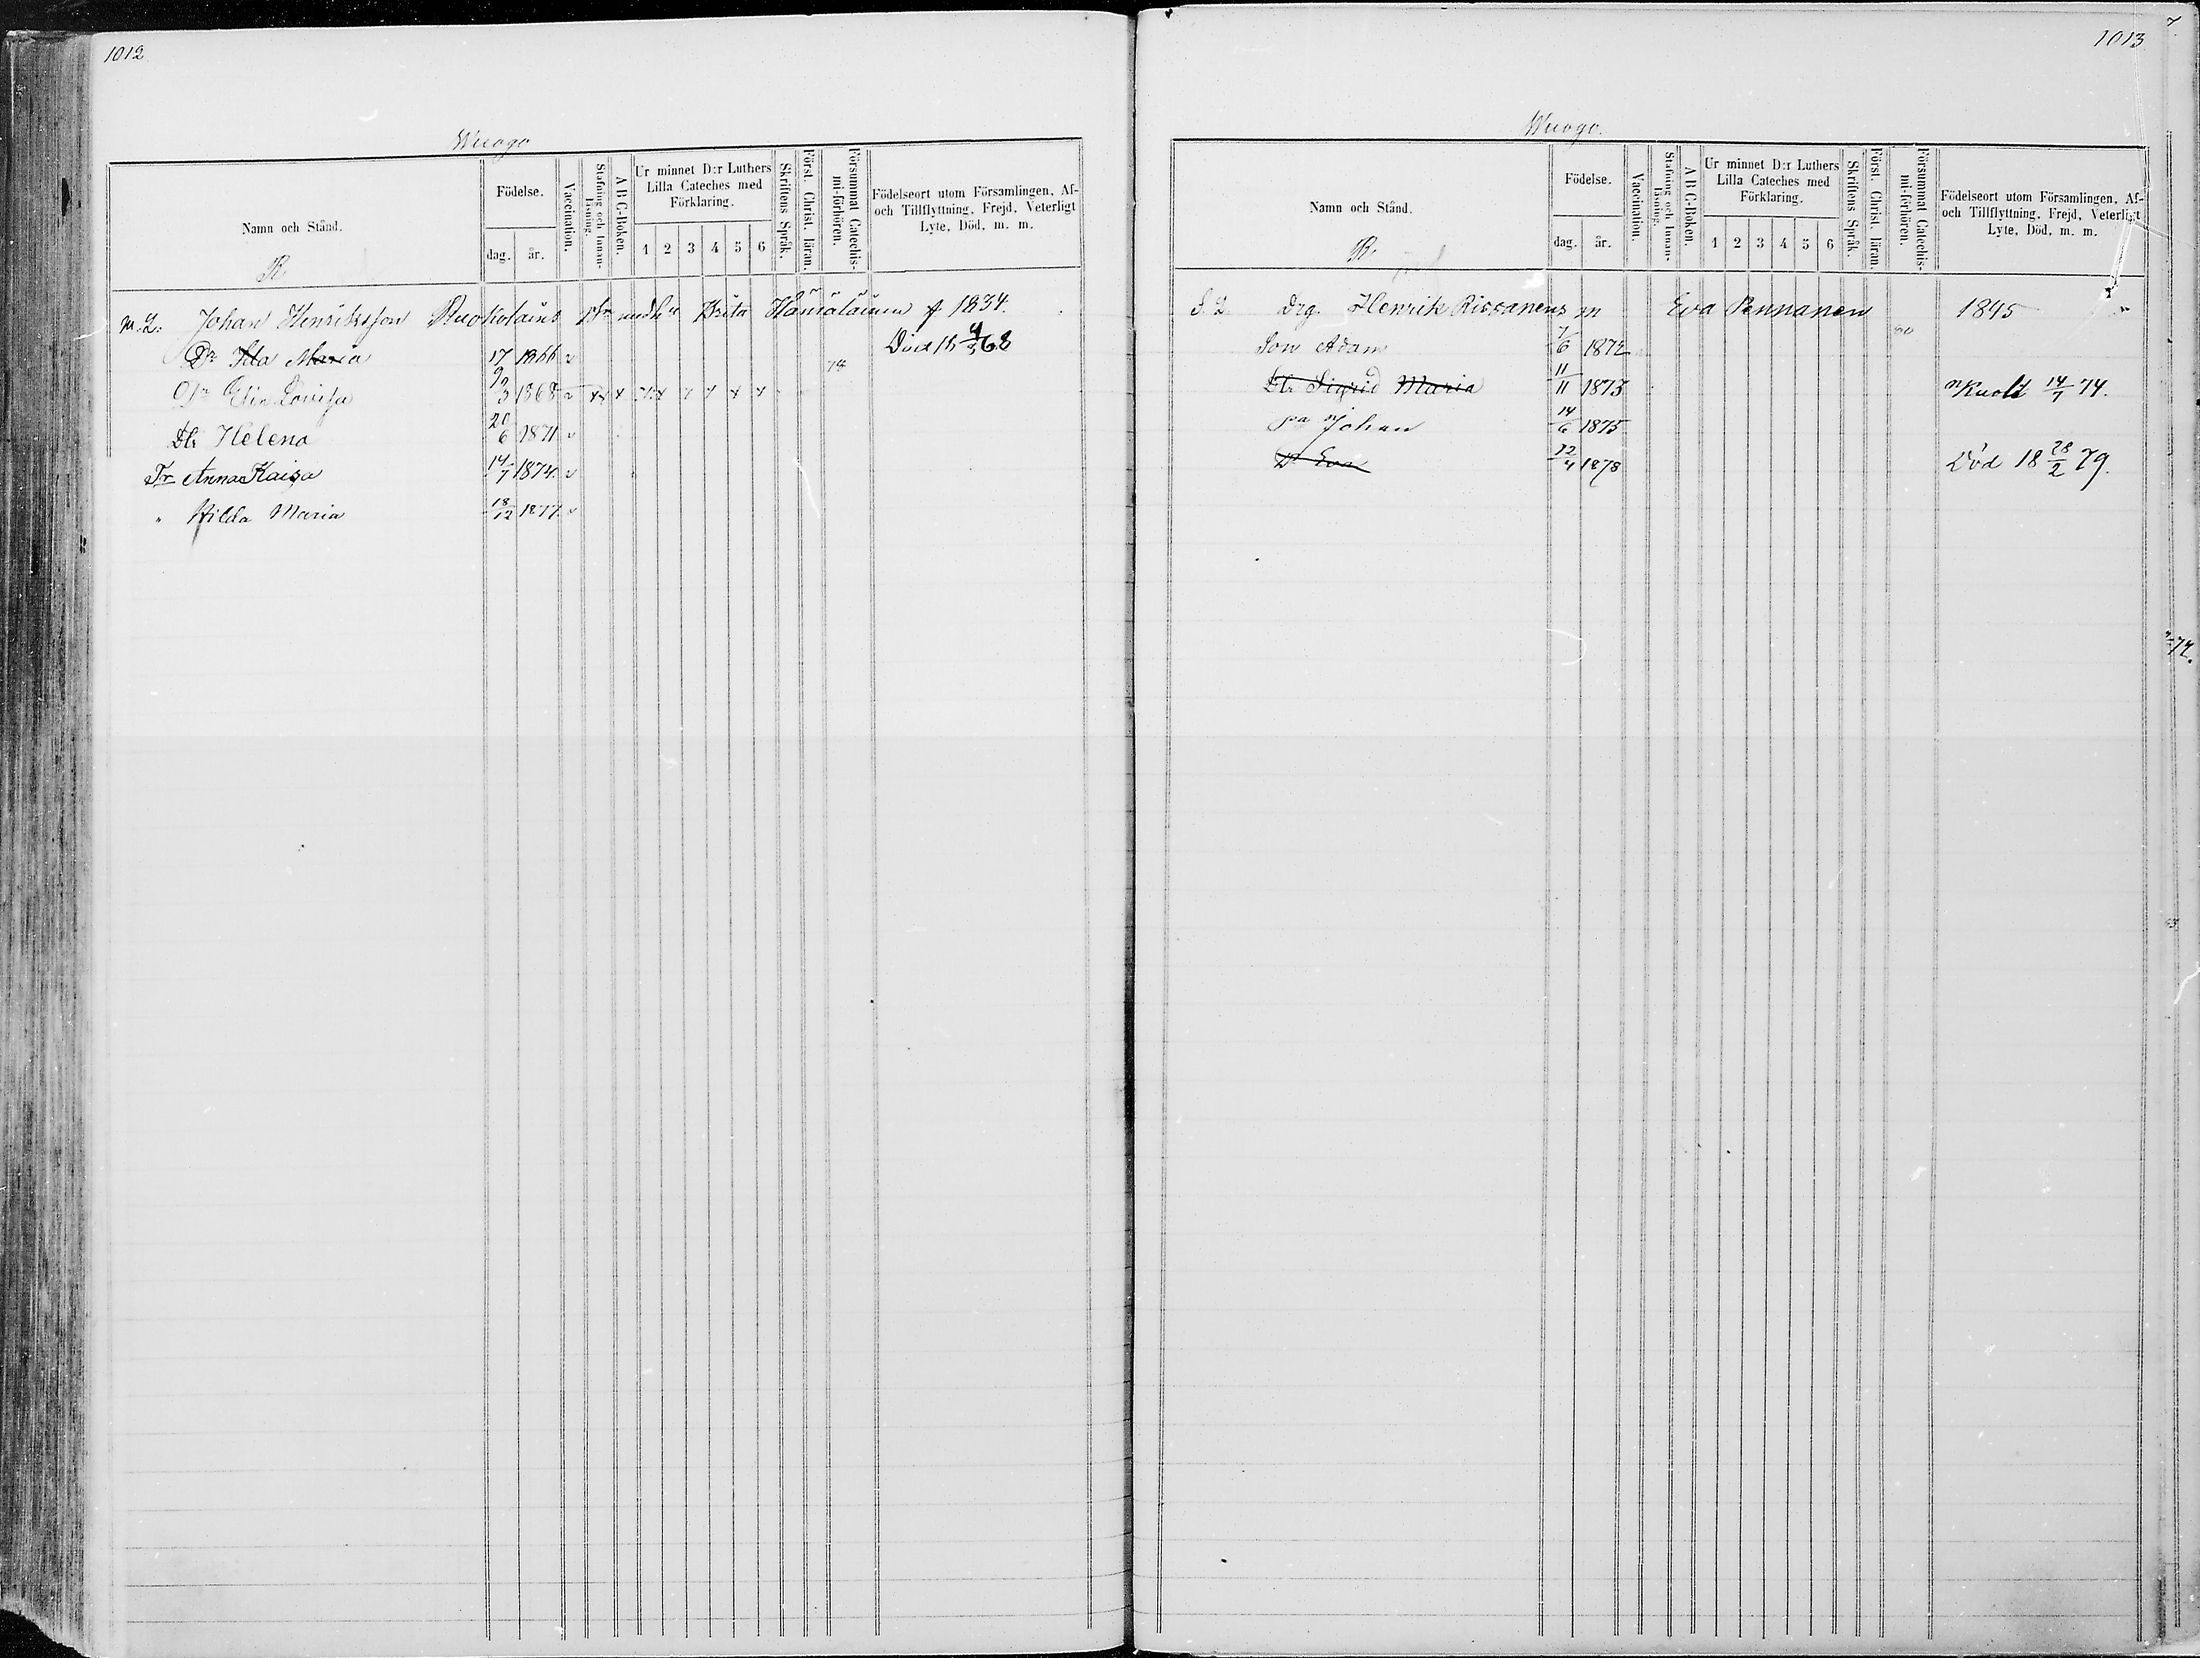 1012
Wuogo
Namn och Stånd.
Födelse.
dag.
år.
Vaccination.
Stafning och Innan-
läsning.
A B C-Boken.
Ur minnet D:r Luthers
Lilla Cateches med
Förklaring.
1 2 3 4 5 6
Skriftens Språk.
Först. Christ. läran.
Försummat Catechis-
mi-förhören.
Födelseort utom Församlingen, Af-
och Tillflyttning, Frejd, Veterligt
Lyte, Död, m. m.
R.
Johan Henriksson Brita 1834.
Dr Ida Maria 17/9 1866 Död 18 4/5 68
Dr Elin Lovisa 1868
Dtr Helena 20/6 1871
Anna Kaisa 14/7 1874
" Hilda Maria 18/12 1877
1013
Wuogo.
Namn och Stånd.
Födelse.
dag.
år.
Vaccination.
Stafning och Innan-
läsning.
A B C-Boken.
Ur minnet D:r Luthers
Lilla Cateches med
Förklaring.
1 2 3 4 5 6
Skriftens Språk.
Först. Christ. läran.
Försummat Catechis-
mi-förhören.
Födelseort utom Församlingen, Af-
och Tillflyttning, Frejd, Veterligt
Lyte, Död, m. m.
R.
Drg. Henrik Rissanens Eva Pennanen 1845
Son Adam 7/6 1872
Dtr Sigrid Maria 11/11 1873 Kuoll 14/7 74.
Johan 14/6 1875
Dr Eva 12/4 1878 Död 18 28/2 79.